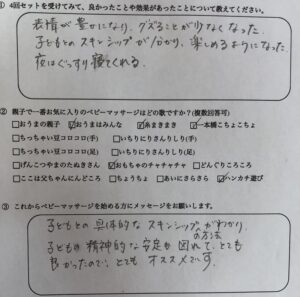 ① 4回セットを受けてみて、良かったことや効果があったことについて教えてください。
表情が豊かになり、グズることが少なくなった。
子どもとのスキンシップが分かり、楽しめるようになった
夜はぐっすり寝てくれる。
② 親子で一番お気に入りのベビーマッサージはどの歌ですか?(複数回答可)
□おうまの親子 ☑おうまはみんな ☑糸まきまき ☑一本橋こちょこちょ
□ちっちゃい豆コロコロ(手) □いちりにりさんりしり(手)
□ちっちゃい豆コロコロ(足) □いちりにりさんりしり(足)
□げんこつやまのたぬきさん ☑おもちゃのチャチャチャ □どんぐりころころ
□ここは父ちゃんにんどころ □ちょうちょ □あいにさらさら ☑ハンカチ遊び
③ これからベビーマッサージを始める方にメッセージをお願いします。
子どもとの具体的なスキンシップの方法がわかり、
子どもの精神的な安定も図れて、とても
良かったので、とてもオススメです。